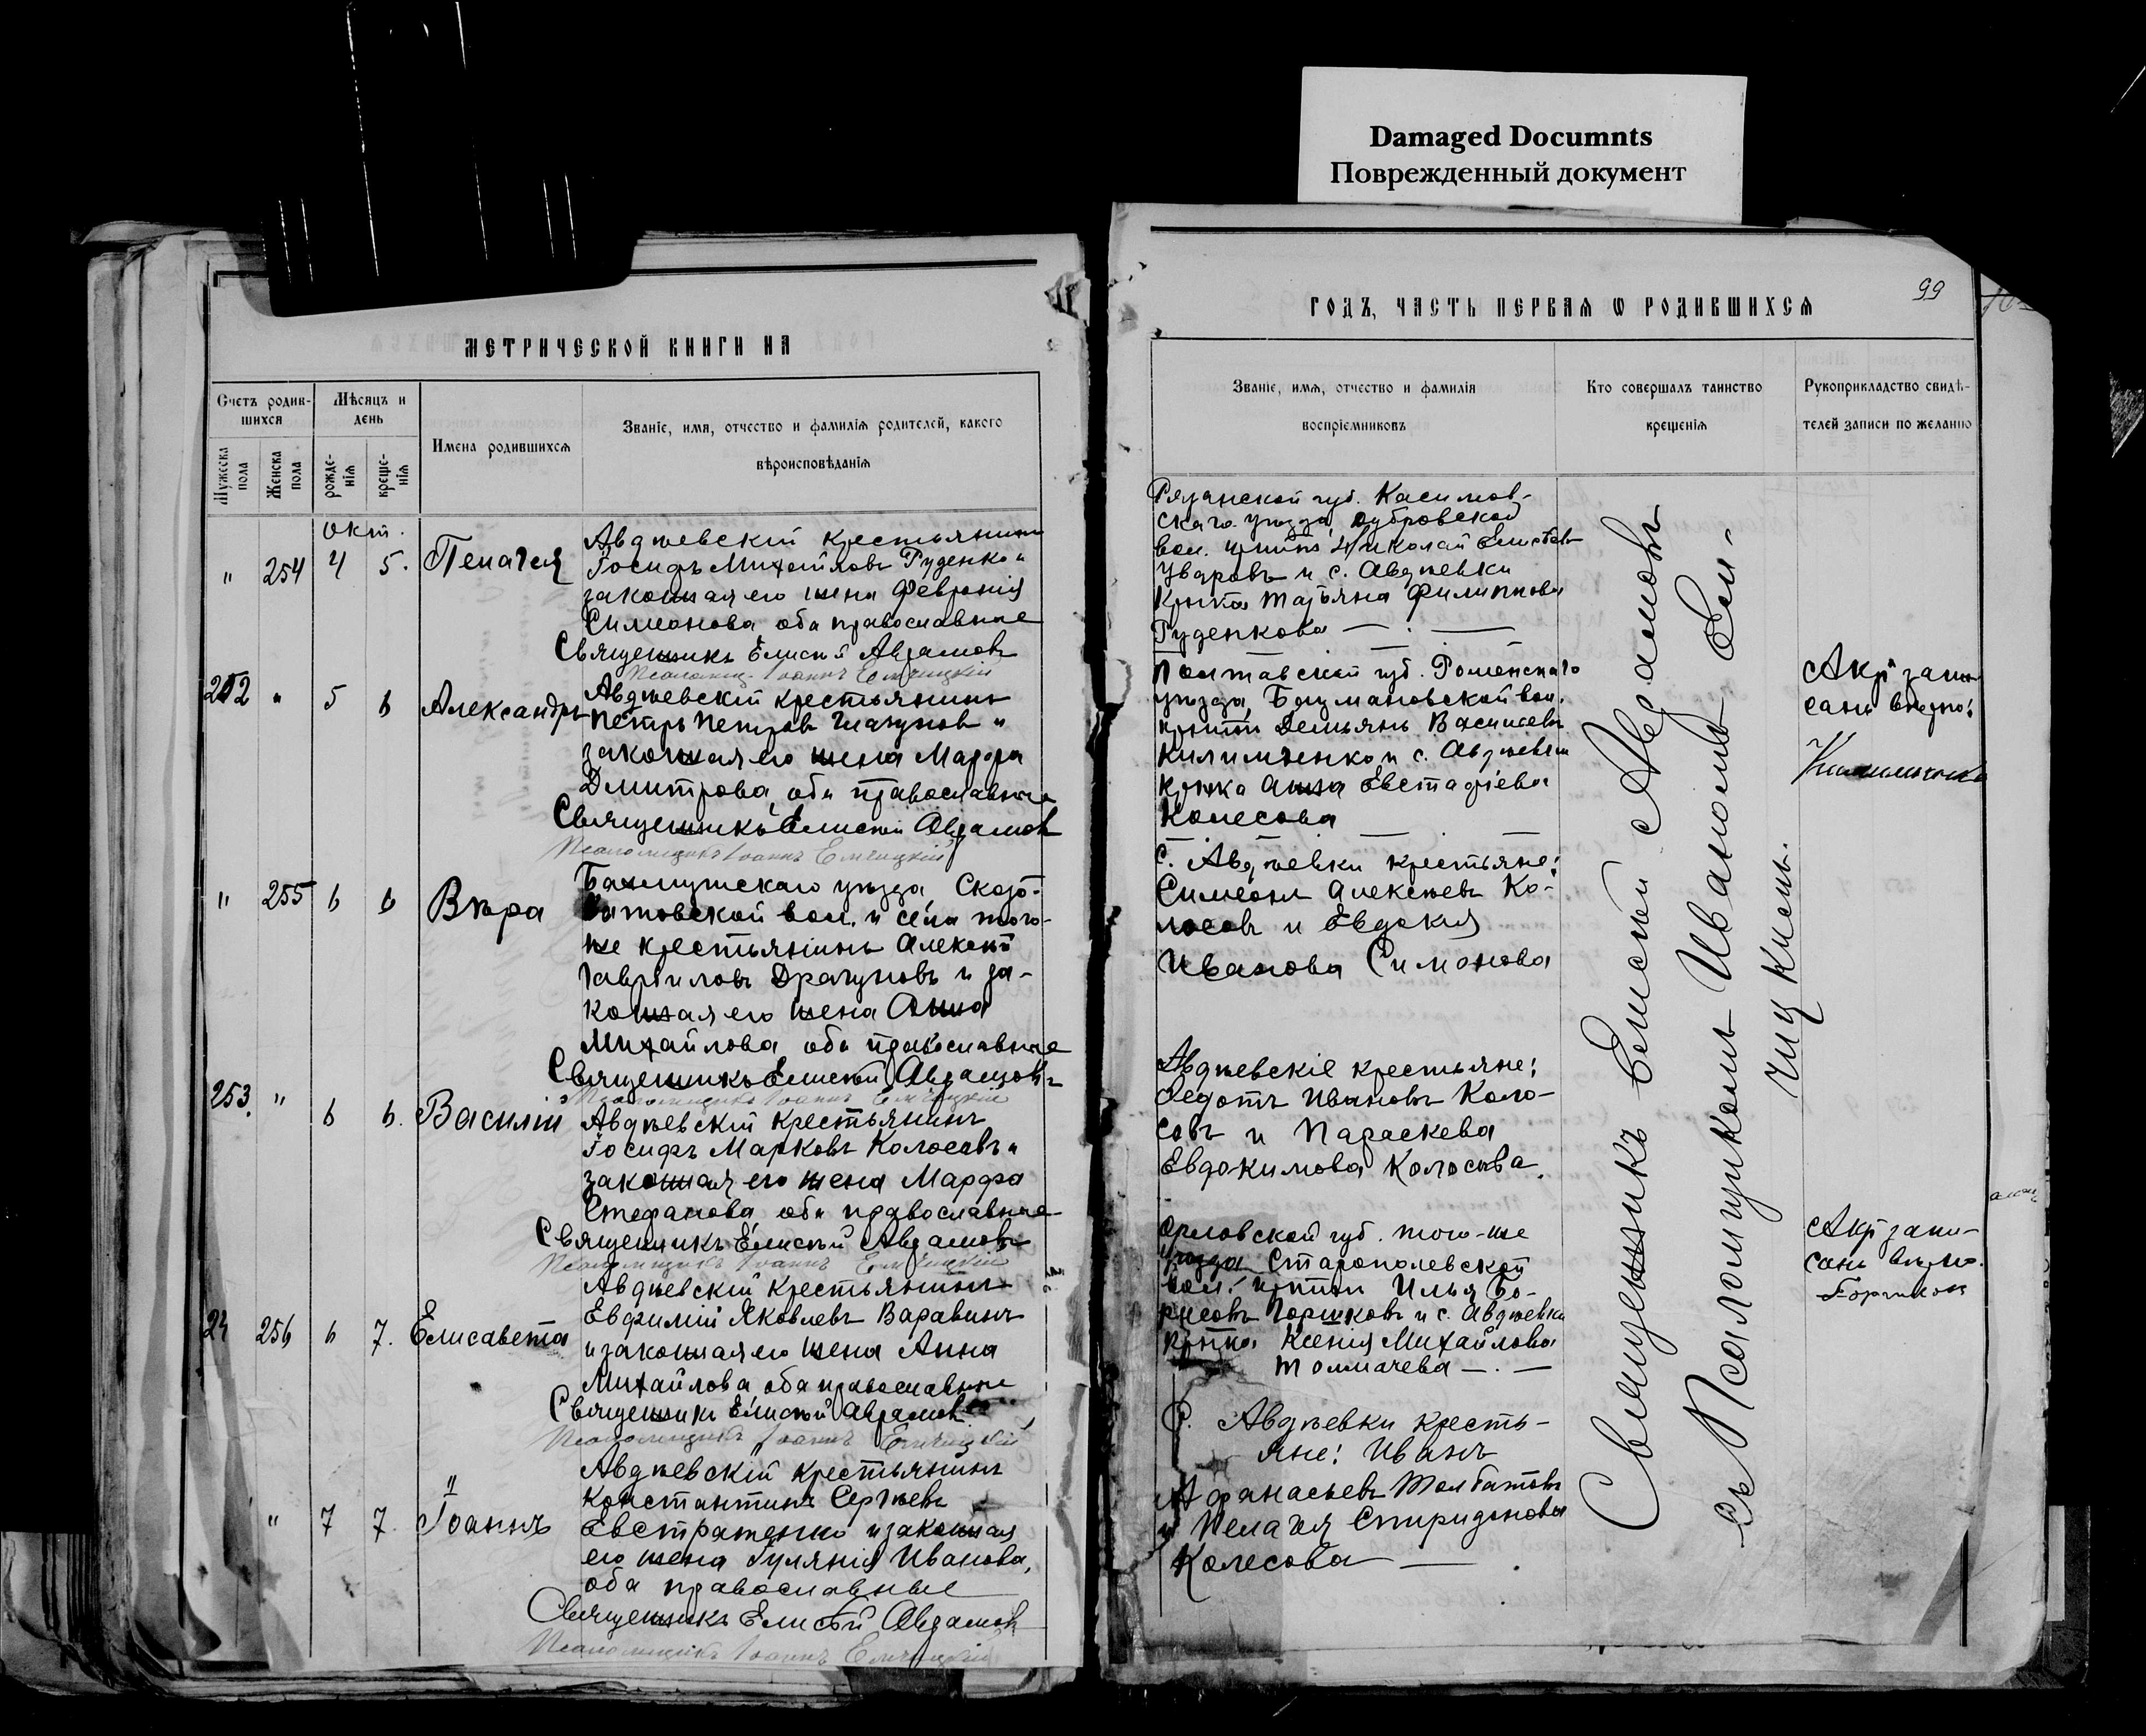 Damaged Documnts
Поврежденный документ
МЕТРИЧЕСКОЙ КНИГИ НА
Счетъ родив-
шихся
Мѣсяцъ и
день
Мужеска
пола
Женска
пола
рожде-
нія
креще-
нія
Имена родившихся
Званіе, имя, отчество и фамилія родителей, какого
вѣроисповѣданія
окт.
" 254 4 5. Пелагея
Авдѣевскій крестьянинъ
Іосифъ Михайловъ Руденко и
законная его жена Февронія
Симеонова оба православные
Священникъ Елисей Авраамовъ
Псаломщикъ Іоаннъ
252 " 5 6 Александръ
Авдѣевскій крестьянинъ
Петръ Петровъ и
законная его жена Марфа
Дмитрова, оба православные
Священникъ Елисей Авраамовъ
Псаломщикъ Іоаннъ
" 255 6 6 Вѣра
Бахмутскаго уѣзда
вол. и села того-
же крестьянинъ Алексѣй
Гавріиловъ Драгуновъ и за-
конная его жена Анна
Михайлова, оба православные
Священникъ Елисей Авраамовъ
Псаломщикъ Іоаннъ
253. " 6 6. Василій
Авдѣевскій крестьянинъ
Іосифъ Марковъ Колосовъ и
законная его жена Марфа
Стефанова оба православные
Священникъ Елисей Авраамовъ
Псаломщикъ Іоаннъ
256 6 7. Елисавета
Авдѣевскій крестьянинъ
Евфимій Яковлевъ Варавинъ
и законная его жена Анна
Михайлова, оба православные
Священникъ Елисей Авраамовъ
Псаломщикъ Іоаннъ
" 7 7. Іоаннъ
Авдѣевскій крестьянинъ
Константинъ Сергѣевъ
Евстратенко и законная
его жена Іуліанія Иванова,
оба православные
Священникъ Елисей Авраамовъ
Псаломщикъ Іоаннъ
99
ГОДЪ, ЧАСТЬ ПЕРВАЯ Ѡ РОДИВШИХСЯ
Званіе, имя, отчество и фамилія
воспріемниковъ
Кто совершалъ таинство
крещенія
Рукоприкладство свидѣ-
телей записи по желанію
Рязанской губ. Касимов-
скаго уѣзда, Дубровской
вол. Николай
Уваровъ и с. Авдѣевки
Татьяна Филиппова
Руденкова
Полтавской губ. Роменскаго
уѣзда, вол.
Демьянъ Васильевъ
и с. Авдѣевки
Анна Евстафіева
Колесова
С. Авдѣевки крестьяне:
Симеонъ Алексѣевъ Ко-
лосовъ и Евдокия
Иванова Симонова
Авдѣевскіе крестьяне:
Федотъ Ивановъ Коло-
совъ и Параскева
Евдокимова Колосова.
Орловской губ. того-же
уѣзда Старопольевской
вол. Илья Бо-
рисовъ Горшковъ и с. Авдѣевки
Ксенія Михайлова
Толмачева
С. Авдѣевки кресть-
яне: Иванъ
Афанасьевъ Толбатовъ
и Пелагея Спиридонова
Колесова
Священникъ Елисей Авраамовъ
съ Псаломщикомъ Иваномъ
Актъ запи-
санъ вѣрно:
Актъ запи-
санъ вѣрно.
Горшковъ